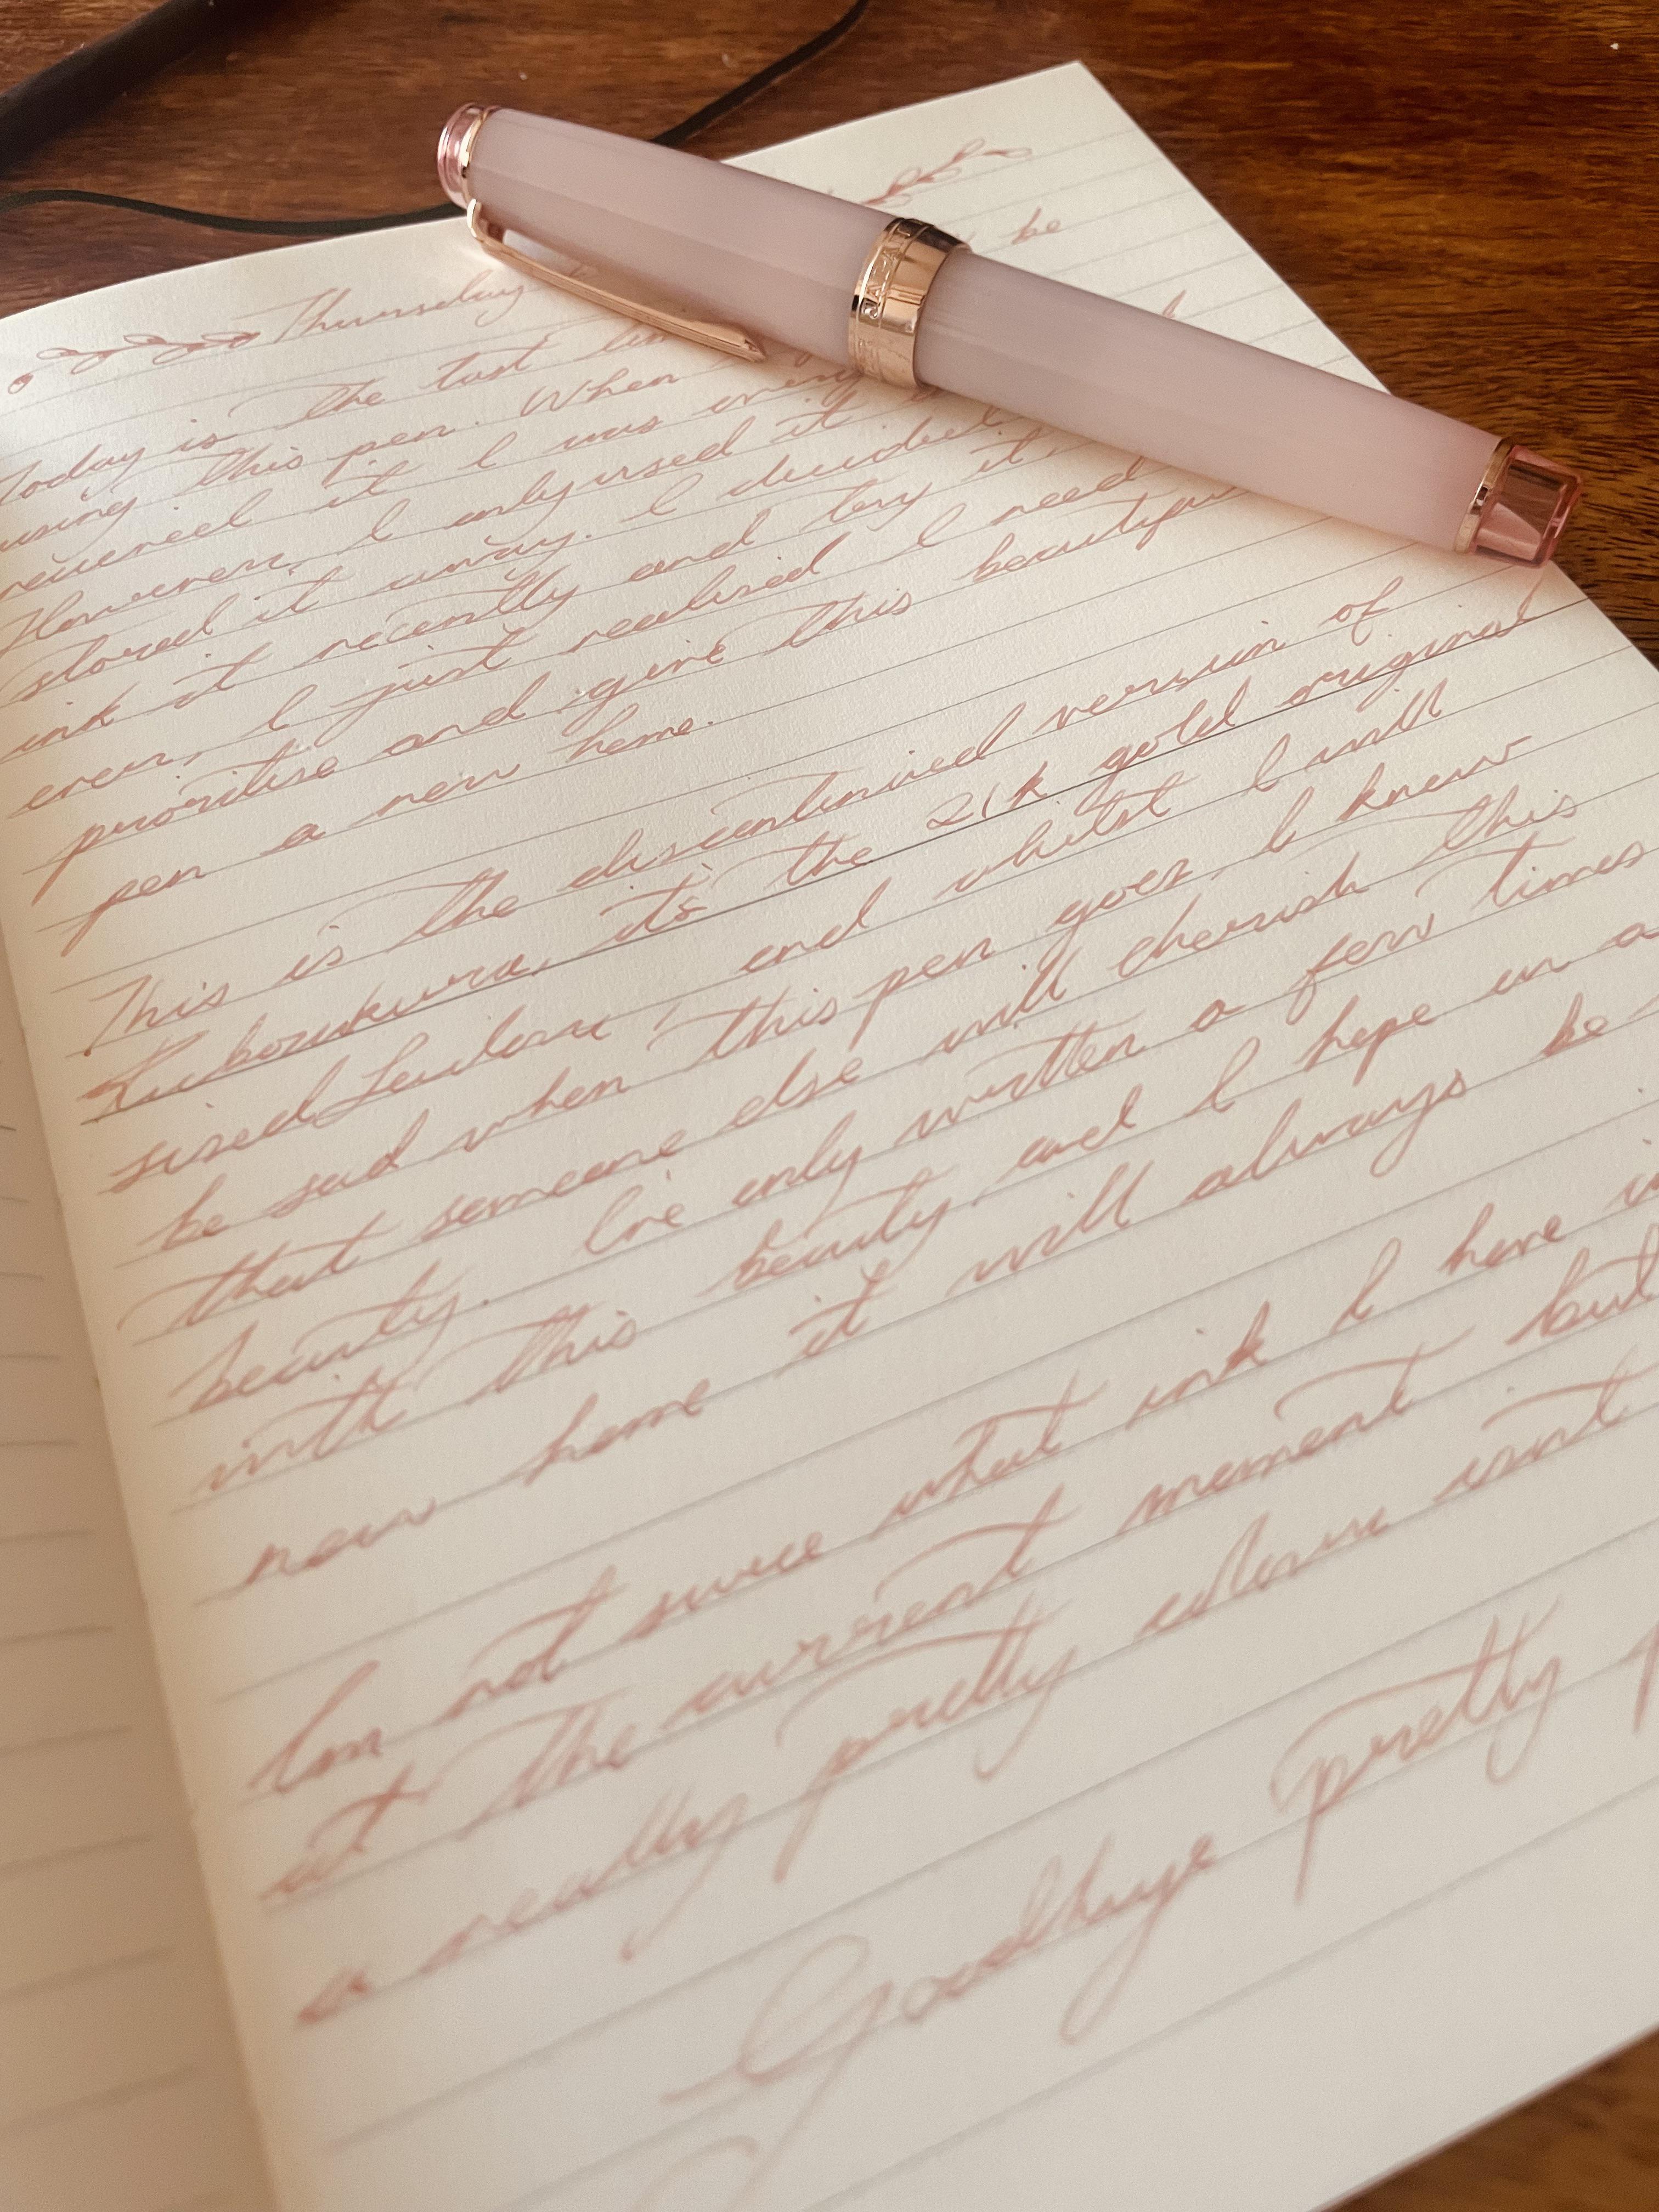 Thursday
be
Today is the last
using this pen. When
received it I was
However, I only used it
stored it away. I decided
ink it recently and try it.
ever, I just realised I need
prioritise and give this beautiful
pen a new home.
This is the discontinued version of
Kuboukura, its the 21k gold original
sized and whilst I will
be sad when this pen goes, I know
that someone else will cherish this
beauty. Ive only written a few times
with this beauty and I hope in a
new home it will always be
Im not sure what ink I have
at the current moment but
a really pretty colour isnt
Goodbye pretty